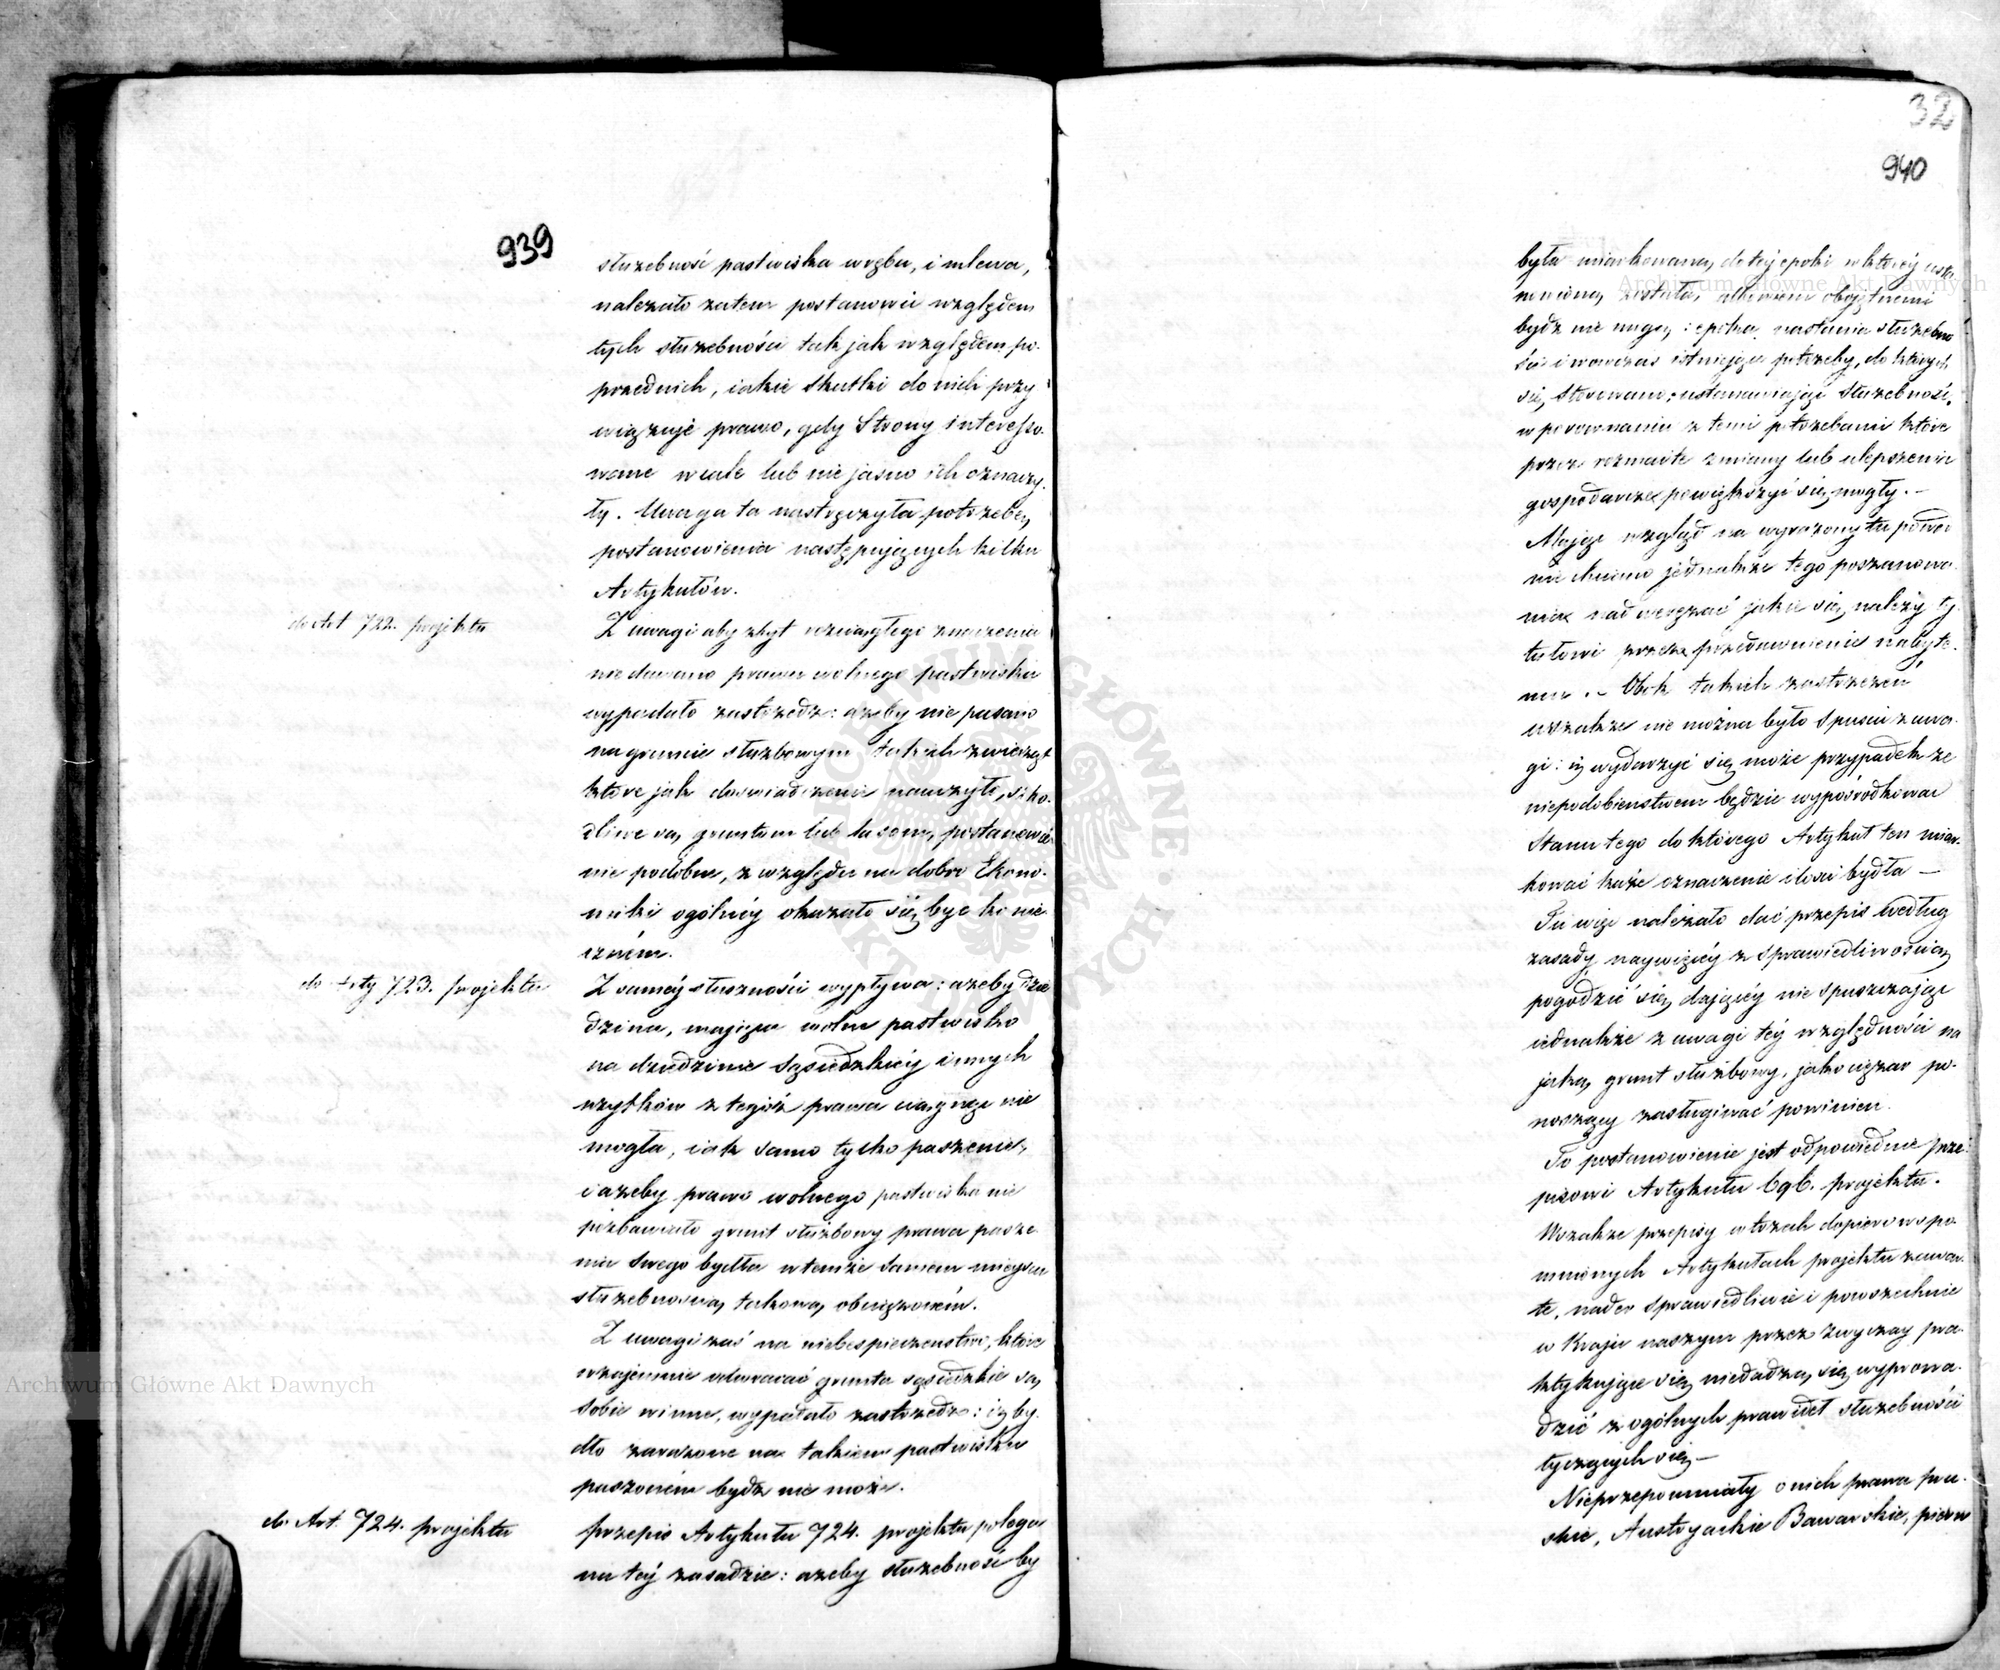 939
służebność pastwiska wrębu, i mlewa,
należało zatem postanowić względem
tych służebności tak jak względem po-
przednich, iakie skutki do nich przy
wiązuje prawo, gdy Strony interesso-
wane wcale lub nie jasno ich oznaczy-
ły. Uwaga ta nastręczyła potrzebę,
postanowienia następujących kilku
Artykułów.
do Art 722. projektu
Z uwagi aby zbyt rozciągłego znaczenia
nie dawano prawu wolnego pastwiska
wypadało zastrzedz: ażeby nie pasano
na gruncie służbowym takich zwierząt
które jak doświadczenie nauczyło, szko-
dliwe są, gruntom lub lasom, postanowie
nie podobne, z względu na dobro Ekono-
miki ogólnéy okazało się, być konie-
czném.
do Arty 723. projektu
Z saméy słuszności wypływa: ażeby dzie
dzina, maiąca wolne pastwisko
na dziedzinie Sąsiedzkiéy innych
użytków z tegóż prawa ciągnąć nie
mogła, iak samo tylko paszenie,
i ażeby prawo wolnego pastwiska nie
pozbawiało grunt służbowy prawa pasze-
nia swego bydła w temże samem mieyscu
służebnością, takową, obciążoném.
Z uwagi zaś na niebespieczeństwo, które
wzajemnie odwracać grunta sąsiedzkie są,
sobie winne, wypadało zastrzedz: iż by-
dło zarażone na takiem pastwisku
paszoném bydź nie może.
do Art. 724. projektu
przepis Artykułu 724. projektu polega
na téj zasadzie: ażeby służebność by
32
940
była miarkowaną, do téy epoki w któréy usta
nowioną została, albowiem obojętnemi
bydź nie mogą: epoka nastania służebno-
ści i wówczas istniejące potrzeby, do których
się, stosowano, ustanawiając Służebność,
w porównaniu z temi potrzebami które
przez rozmaite zmiany lub ulepszenie
gospodarcze powiększyć się, mogły. –
Mając wzgląd na wyrażony tu powód
nie chciano jednakże tego poszanowa-
nia nadwerężać jakie się, należy ty-
tułowi przez przedawnienie nabyte-
mu. – Obok takich zastrzeżeń
wszakże nie można było Spuścić z uwa-
gi: iż wydarzyć się, może przypadek że
niepodobieństwem będzie wypośrodkować
Stanu tego do którego Artykuł ten miar-
kować każe oznaczenie ilości bydła –
Tu więc należało dać przepis według
zasady naywięcéy z Sprawiedliwością,
pogodzić się, dającéy nie Spuszczając
iednakże z uwagi téy względności na
jaką, grunt służbowy, jako ciężar po-
noszący zasługiwać powinien.
To postanowienie jest odpowiednie prze-
pisowi Artykułu 696. projektu.
Wszakże przepisy w trzech dopiero wspo-
mnionych Artykułach projektu zawar-
te, nader Sprawiedliwie i powszechnie
w Kraju naszym przez zwyczay pra-
ktykujące się, niedadzą, się, wyprowa-
dzić z ogólnych prawideł służebności
tyczących się, –
Nieprzepomniały o nich prawa pru-
skie, Austryackie Bawarskie, pierw